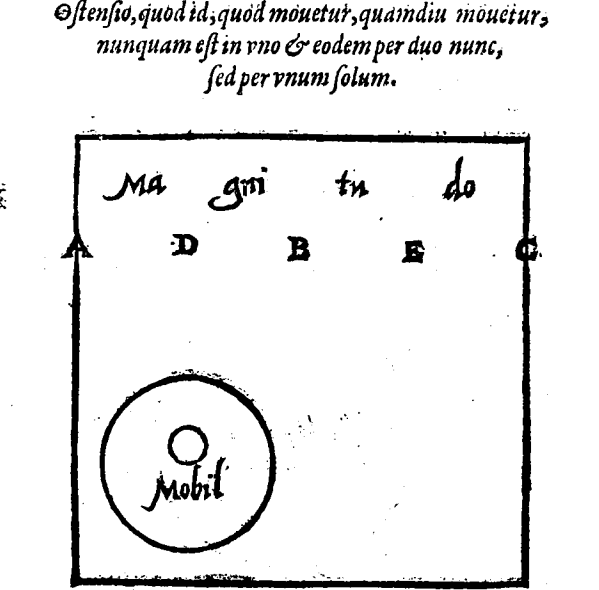 Oſtenſio, quod id, quod mouetur, quamdiu mouetur,
nunquam eſt in vno & eodem per duo nunc,
ſed per vnum ſolum.
Ma gni tu do
A D B E C
Mobil